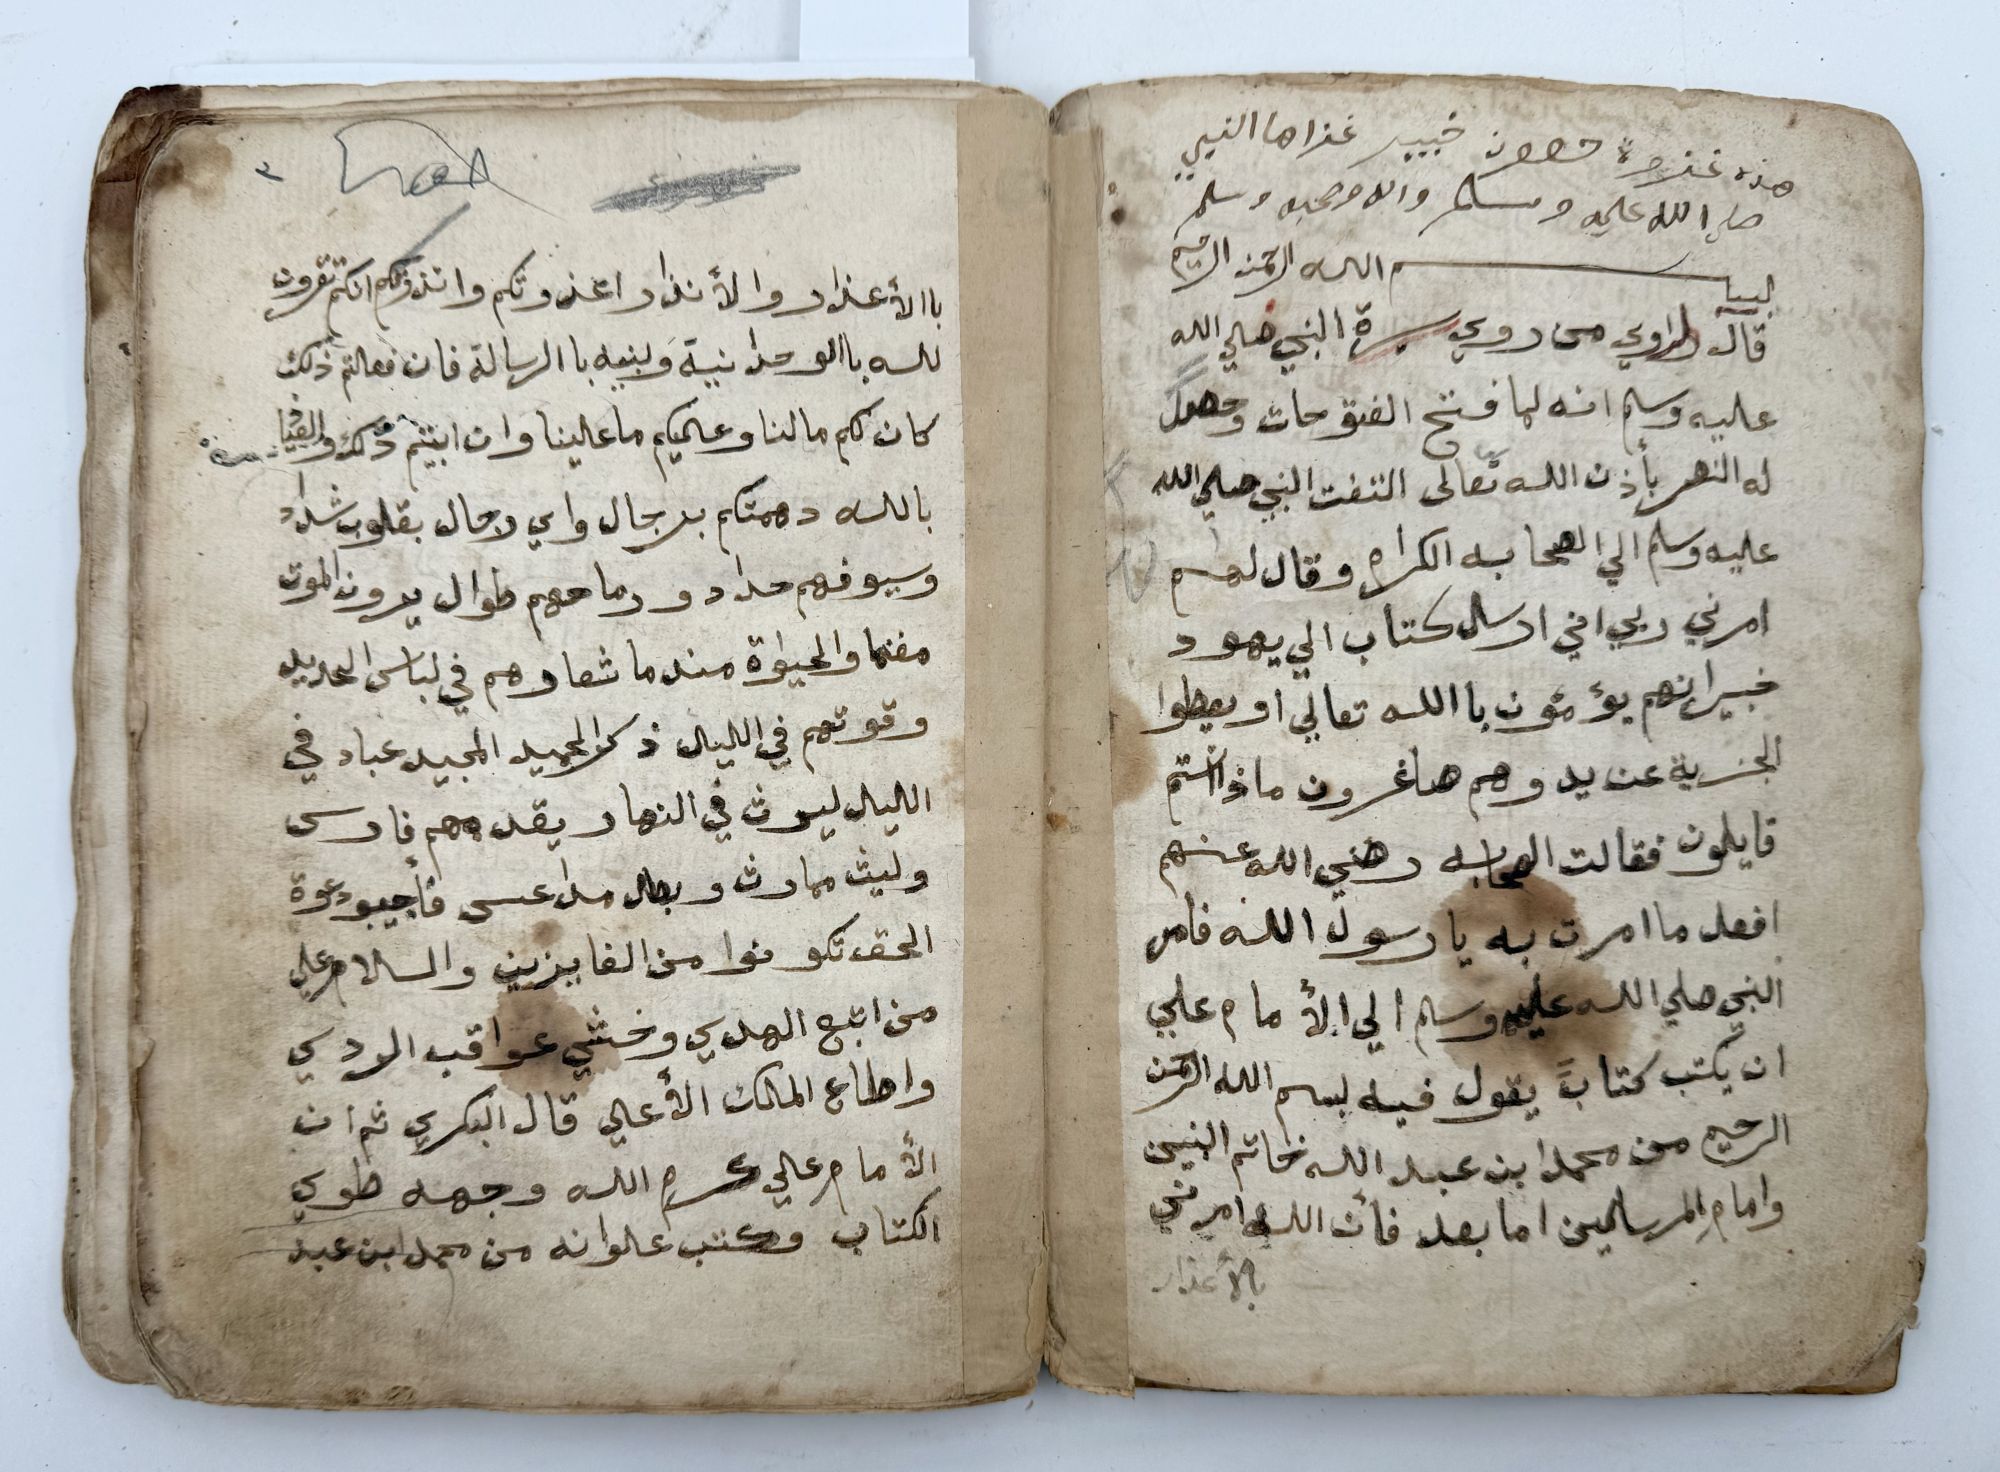 هذه غزوة حصون خيبر غزاها النبي
صلي الله عليه وسلم واله وصحبه وسلم
بسم الله الرحمن الرحيم
قال الراوي من روي سيرة النبي صلي الله
عليه وسلم انه لما فتح الفتوحات وحصل
له النصر بأذن الله تعالى التفت النبي صلي الله
عليه وسلم الي الصحابه الكرام وقال لهم
امرني ربي اني ارسل كتاب الي يهود
خيبر انهم يؤمنون باالله تعالي او يعطوا
الجزية عن يد وهم صاغرون ماذا انتم
قايلون فقالت الصحابه رضي الله عنهم
افعل ما امرت به يا رسول الله فامر
النبي صلي الله عليه وسلم الي الأمام علي
ان يكتب كتاباً يقول فيه بسم الله الرحمن
الرحيم من محمد ابن عبد الله خاتم النبيين
وامام المرسلين اما بعد فأن الله امرني
بالأعذار
٢
باالأعذار والأنذار اعذرتكم وانذرتكم انكم تقرون
لله باالوحدانية ولنبيه باالرسالة فان فعالتم ذلك
كان لكم مالنا وعليكم ما علينا وان ابيتم ذلك
بالله دهمتكم برجال واي رجال بقلوب شداد
وسيوفهم حداد ورماحهم طوال يرون الموت
مغنما والحيواة مندما شعارهم في لباس الحديد
وقوتهم في الليل ذكر الحميد المجيد عباد في
الليل ليوث في النهار يقدمهم فارس
وليث ممارث وبطل مداعس فأجيبو دعوة
الحق تكونوا من الفايزين والسلام علي
من اتبع الهدي وخشي عواقب الردي
واطاع المالك الأعلي قال البكري ثم ان
الأمام علي كرم الله وجهه طوي
الكتاب وكتب علوانه من محمد ابن عبد